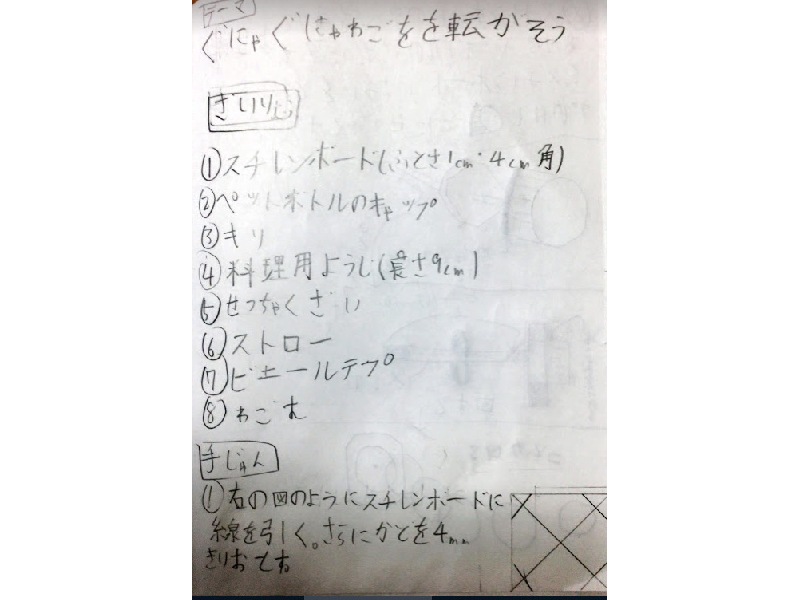 テーマ
ぐにゃぐにゃわごをを転がそう
ざいりょう
①スチレンボード(ふとさ1cm・4cm角)
②ペットボトルのキャップ
③キリ
④料理用ようじ(長さ9cm)
⑤せっちゃくざい
⑥ストロー
⑦ビニールテプ
⑧わごむ
手じゅん
①右の図のようにスチレンボードに
線を引しく。さらにかとを4mm
きりおとす